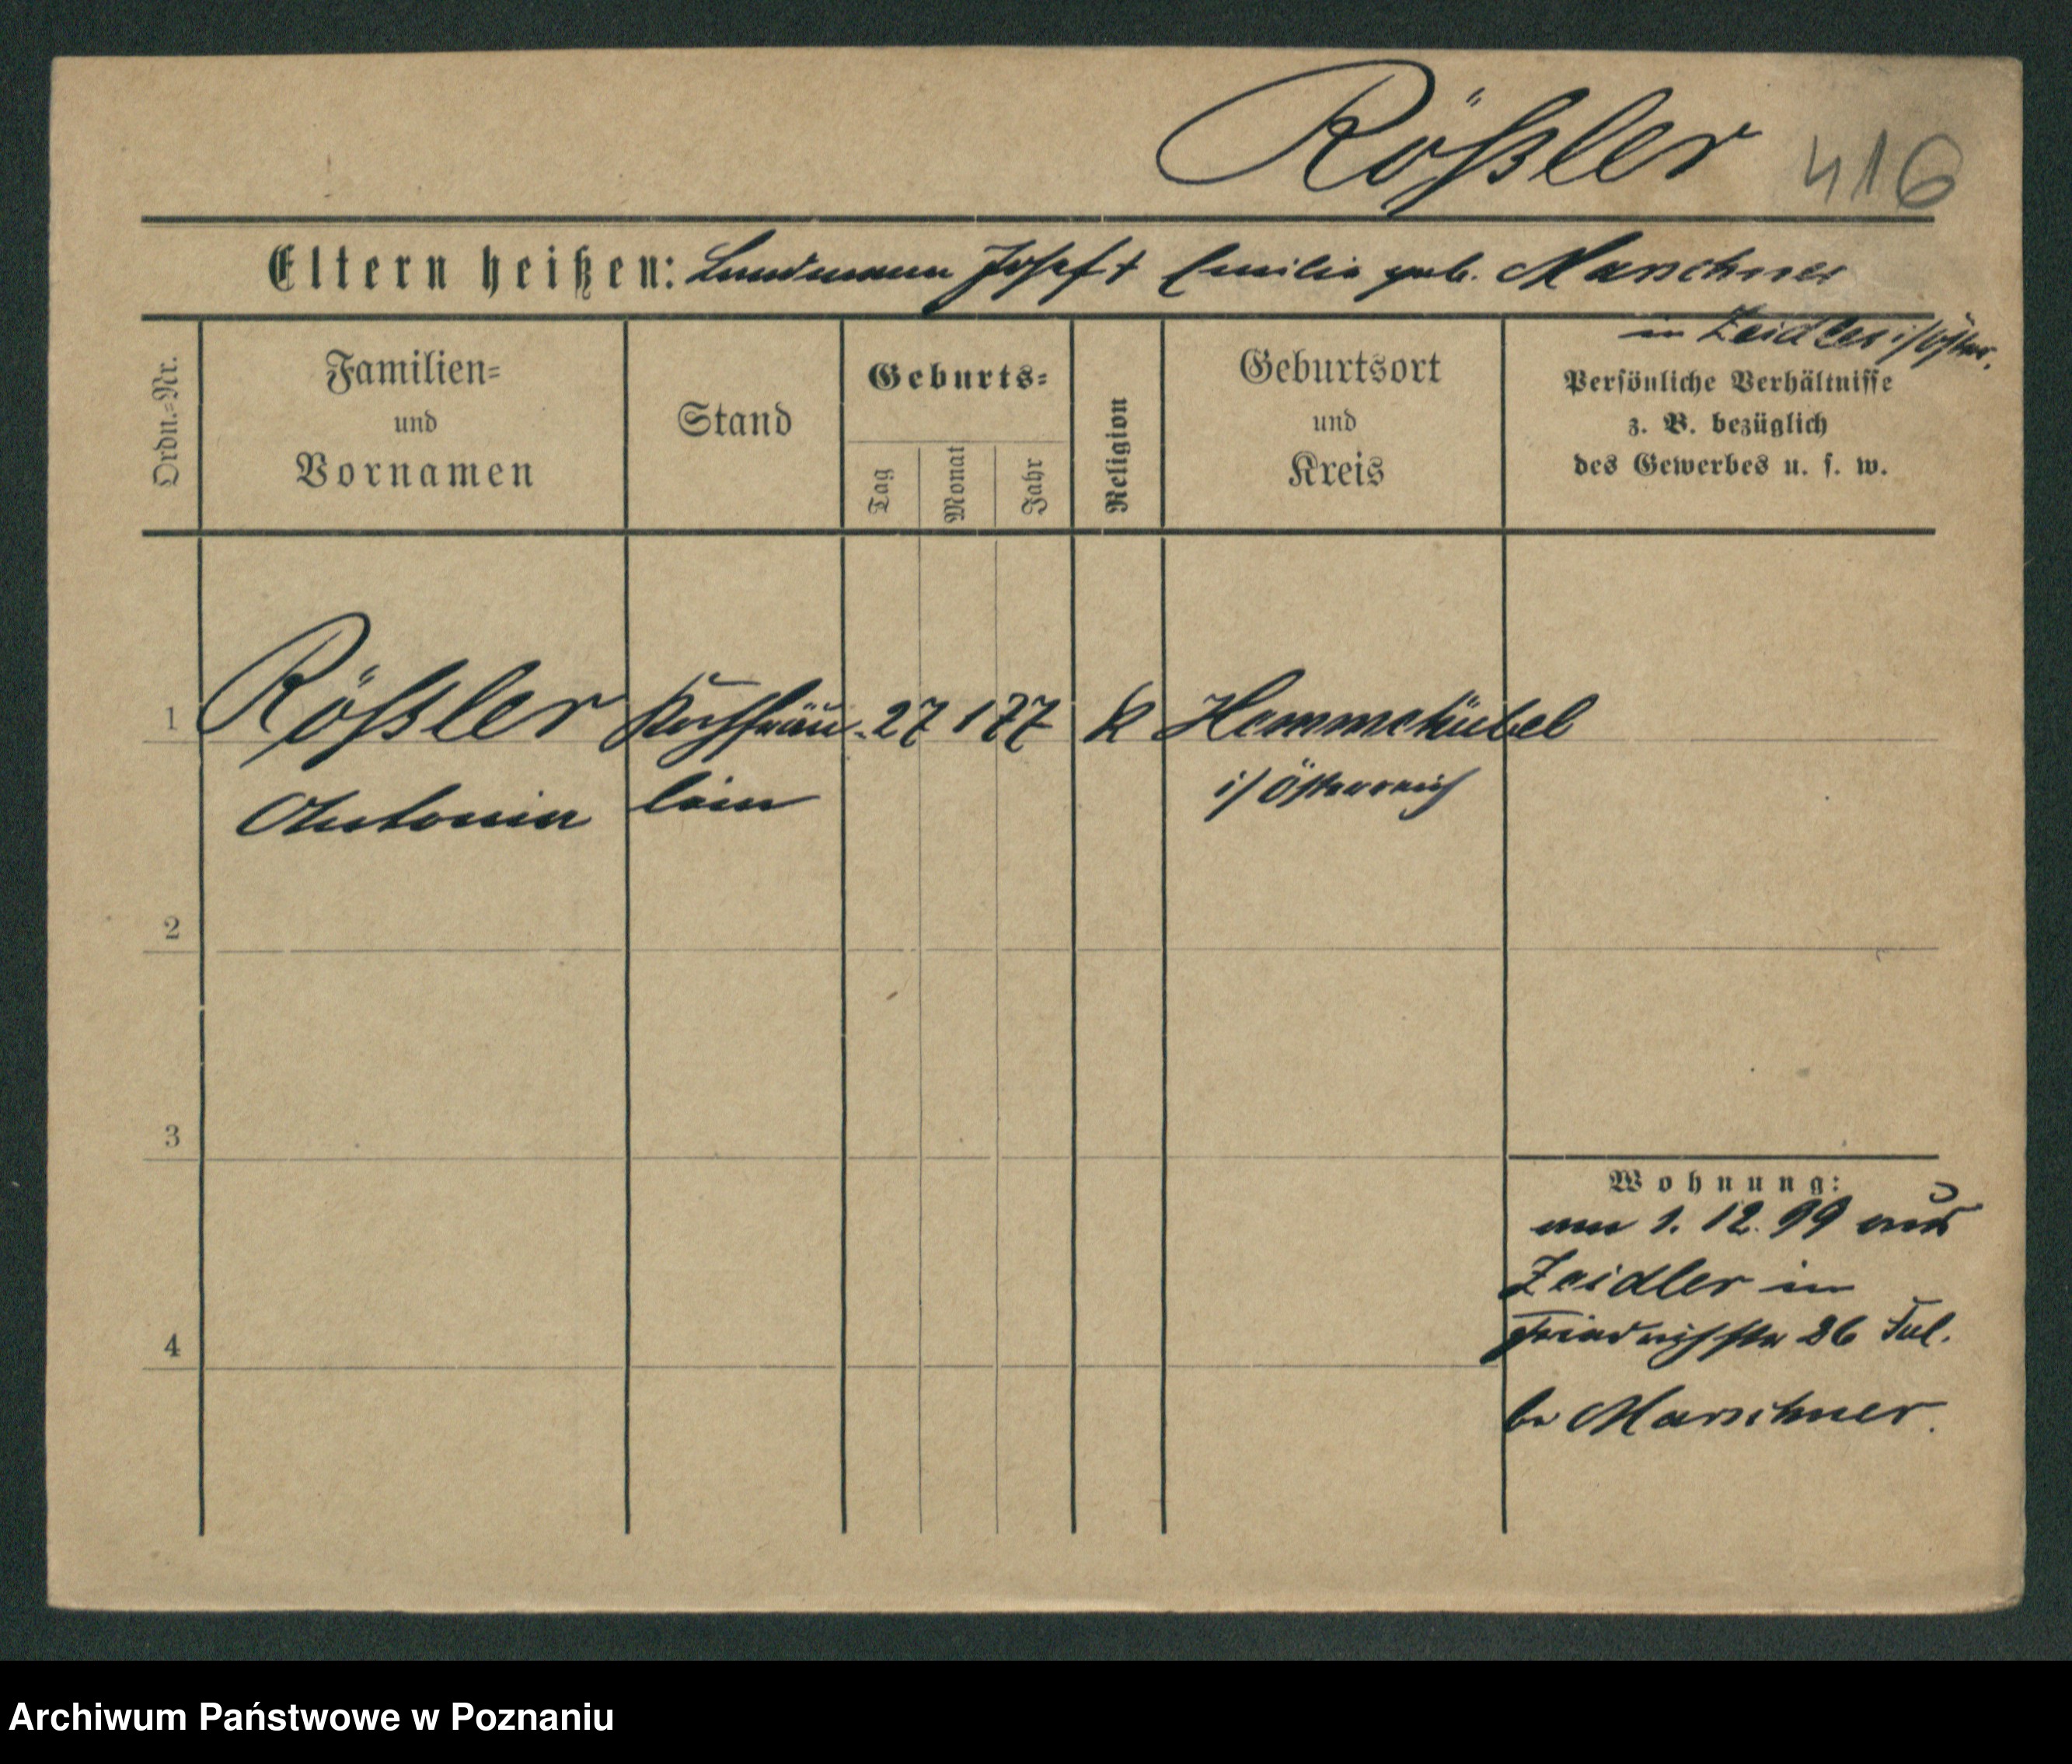 Rößler 416
Eltern heißen: Landmann Josef † Emilie geb. Marschner
in Zeidler i/Öster.
Ordn.=Nr.
Familien=
und
Vornamen
Stand
Geburts=
Tag
Monat
Jahr
Religion
Geburtsort
und
Kreis
Persönliche Verhältnisse
z. B. bezüglich
des Gewerbes u. s. w.
1 Rößler Kochfräu- 27 1 77 k Hemmehübel
Antonia lein i/Österreich
2
3
Wohnung:
am 1. 12. 99 aus
Zeidler in
4
Friedrichstr 26
b. Marschner.
Archiwum Państwowe w Poznaniu